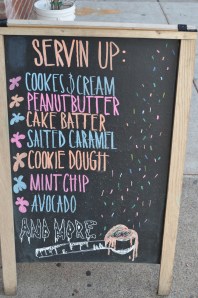 SERVIN UP:
COOKIES & CREAM
PEANUT BUTTER
CAKE BATTER
SALTED CARAMEL
COOKIE DOUGH
MINT CHIP
AVOCADO
AND MORE